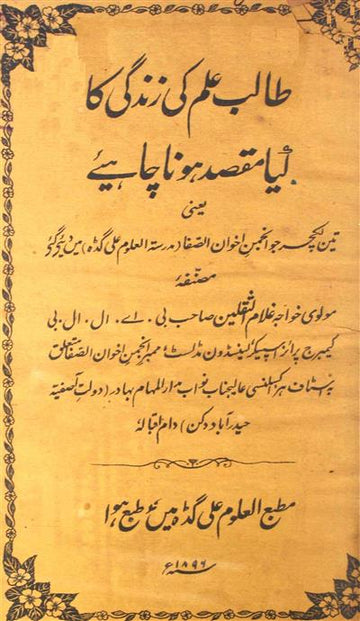 طالب علم کی زندگی کا
کیا مقصد ہونا چاہیئے
یعنی
تین لیکچر جو انجمن اخوان الصفا (مدرستہ العلوم علی گڈہ) میں دیئے گئے
مصنفہٴ
مولوی خواجہ غلام الثقلین صاحب بی. اے. ال. ال. بی
کیمبرج پرائز اسپیکر لینسڈون مڈلسٹ و ممبر انجمن اخوان الصفا متعلق
اسٹاف ہز اکسلنسی عالیجناب نواب مدار المہام بہادر (دولت آصفیہ
حیدرآباد دکن) دام اقبالہٗ
مطبع العلوم علی گڈہ میں طبع ہوا
سنہ ۱۸۹۶ء